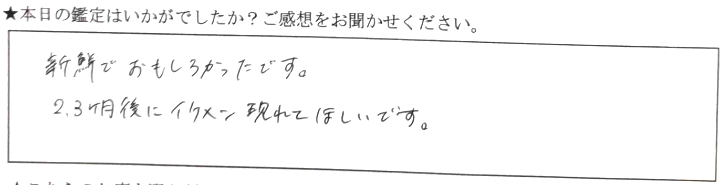 ★本日の鑑定はいかがでしたか？ご感想をお聞かせください。
新鮮でおもしろかったです。
2.3ヶ月後にイケメン現れてほしいです。